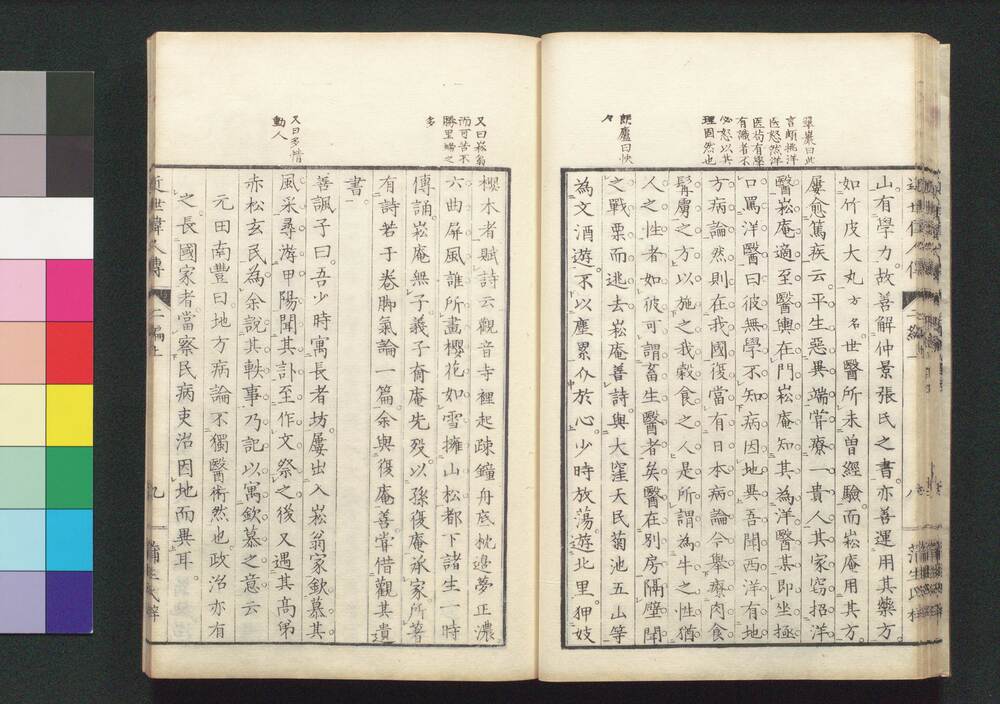 山有學力。故善解仲景張氏之書。亦善運用其藥方。
如竹皮大丸方名世醫所未曽經驗。而崧庵用其方。
屢愈篤疾云。平生惡異端。嘗療一貴人。其家窃招洋
醫。崧庵適至。醫輿在門。崧庵知其為洋醫。其即坐極
口罵洋醫曰。彼無學不知病因地異。吾聞西洋有地
方病論。然則在我國復當有日本病論。今舉療肉食
人之性者如彼。可謂畜生醫者矣。醫在別房隔壁聞
之。戰栗而逃去。崧庵善詩。與大窪天民菊池五山等
為文酒遊。不以塵累介於心。少時放蕩。遊北里狎妓
翠巖曰此
医怒然洋
医苟有學
有識者不
必怒以其
理固然也
曰快
々
櫻木者。賦詩云。觀音寺裡起疎鐘。舟底枕邊夢正濃。
六曲屏風誰所畫。櫻花如雪擁山松。都下諸生一時
傳誦。崧庵無子。義子裔庵先歿。以孫復庵承家。所著
有詩若干卷。脚氣論一篇。余與復庵善。嘗借觀其遺
書。
善諷子曰。吾少時寓長者坊。屢出入崧翁家。欽慕其
風采。尋游甲陽。聞其訃至。作文祭之。後又遇其高弟
赤松玄民。為余說其軼事。乃記以寓欽慕之意云
元田南豐曰。地方病論不獨醫術然也。政治亦有
之。長國家者。當察民病吏治因地而異耳。
又曰崧翁
而可苦不
多
又曰多情
動人
近世偉人傳
二編上
九
蒲生氏梓